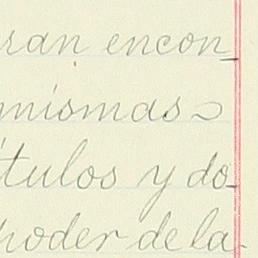 ran encon_
mismas
ítulos y do_
poder de la